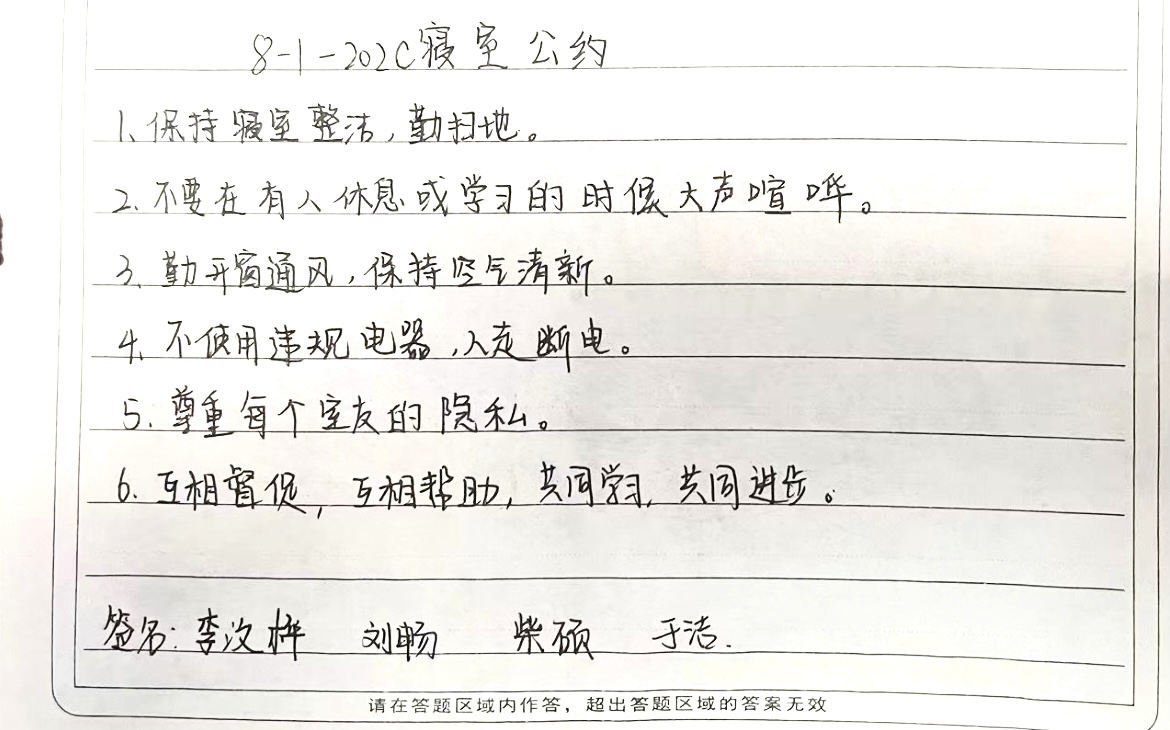 8-1-202C寝室公约
1、保持寝室整洁，勤扫地。
2、不要在有人休息或学习的时候大声喧哗。
3、勤开窗通风，保持空气清新。
4、不使用违规电器，人走断电。
5、尊重每个室友的隐私。
6、互相督促，互相帮助，共同学习，共同进步。
签名：李汶梓 刘畅 柴硕 于洁.
请在答题区域内作答，超出答题区域的答案无效